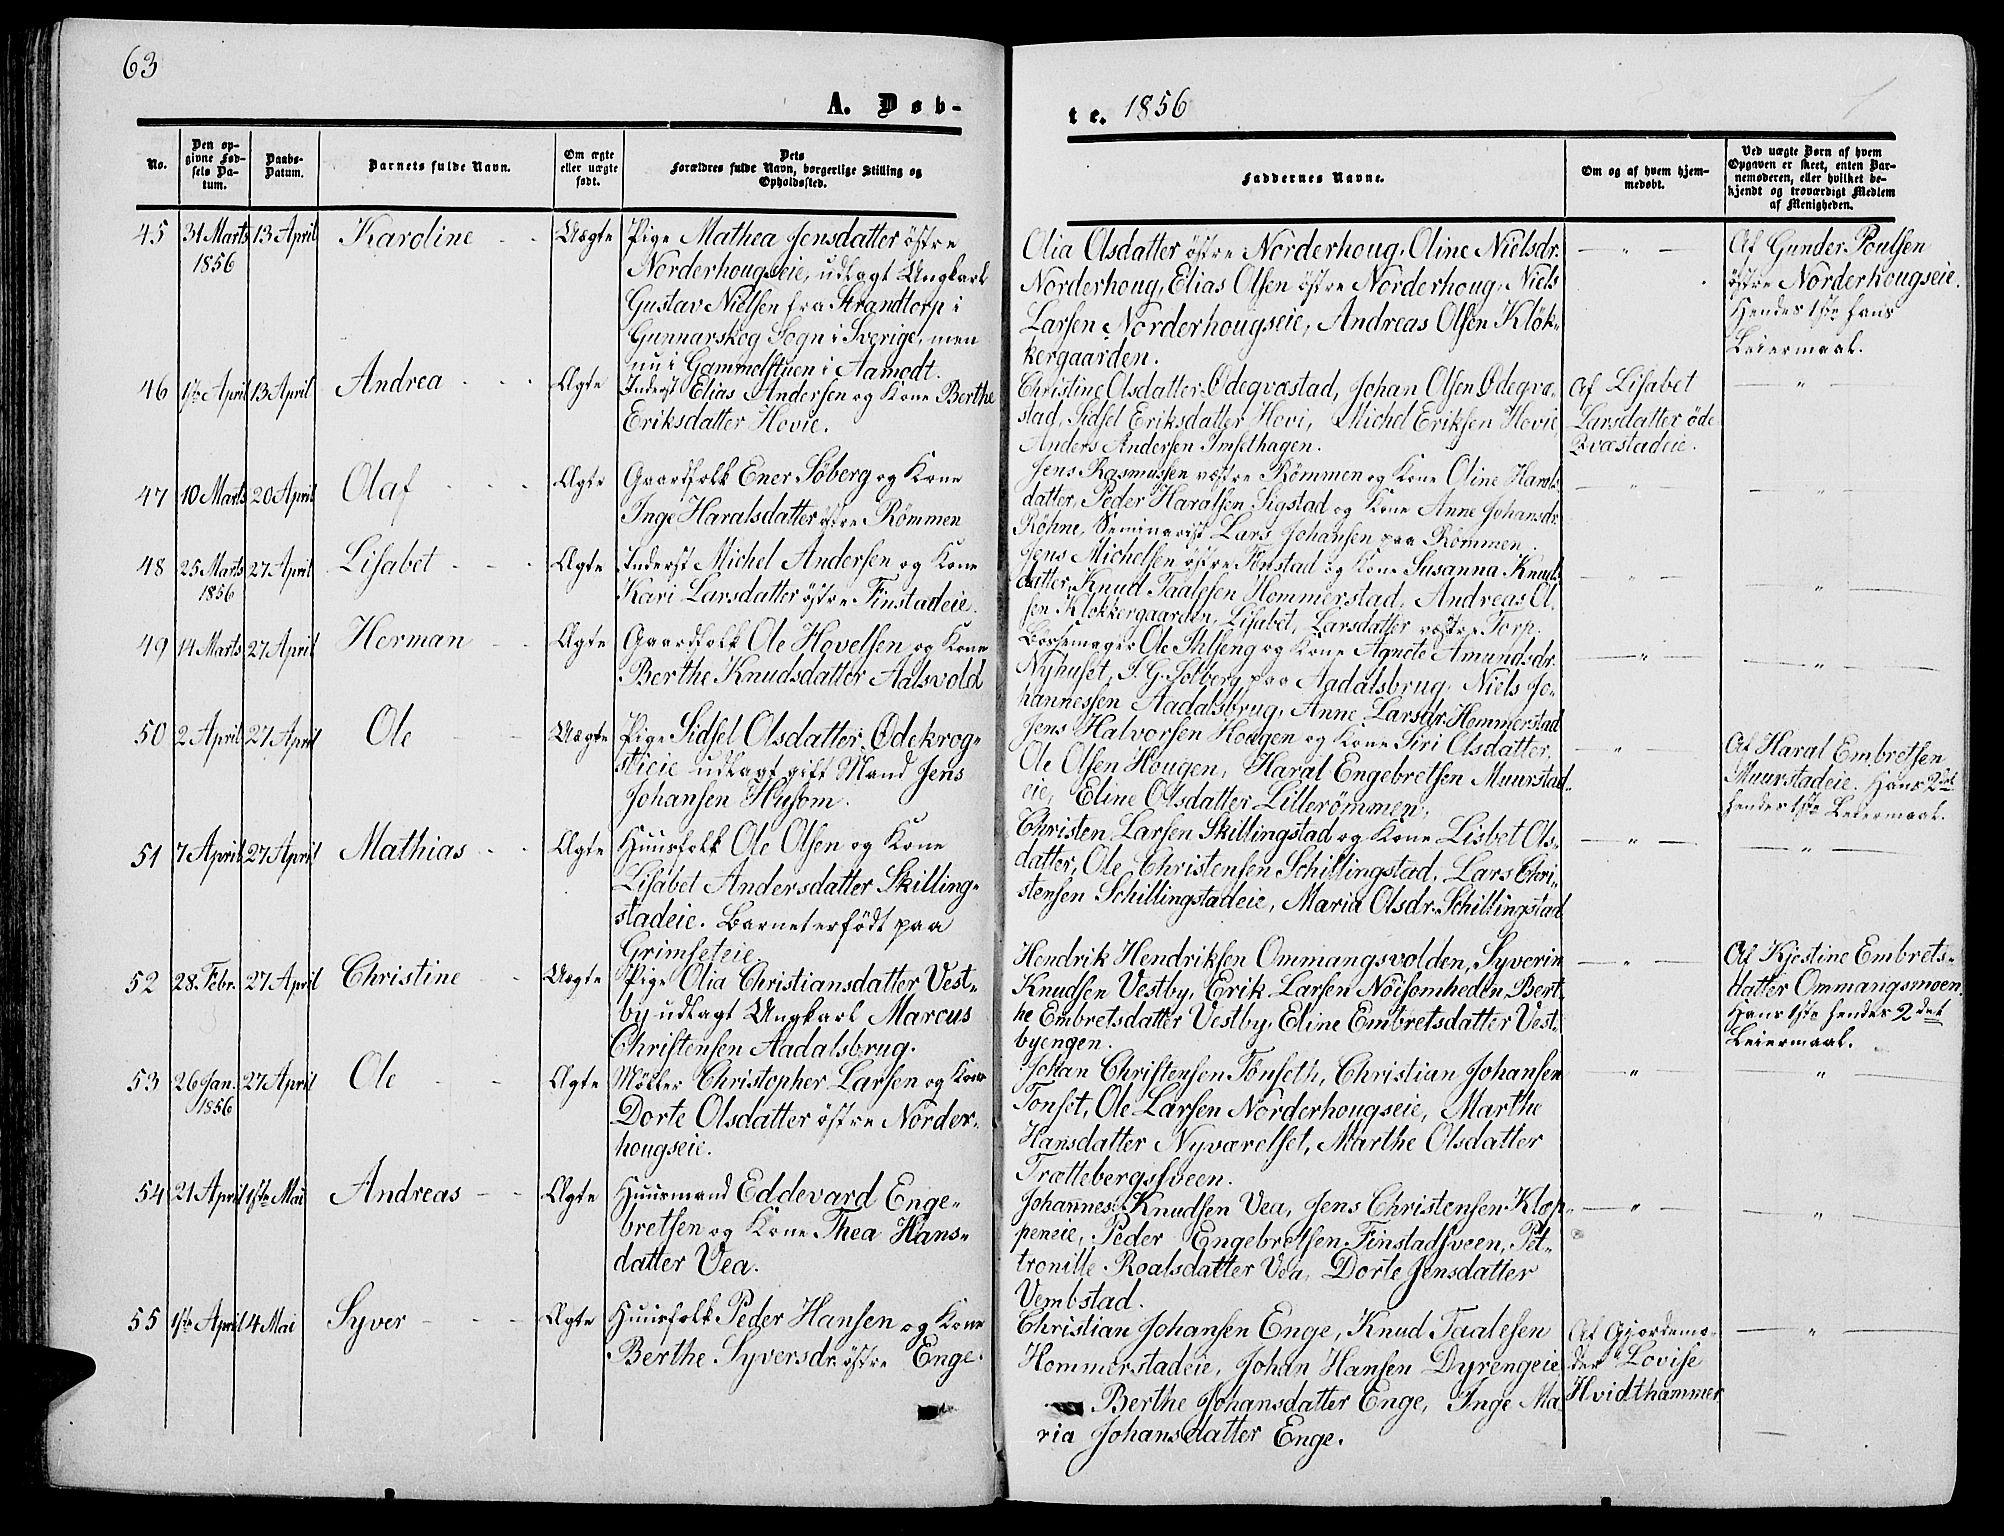 63
A. Døb-
te. 1856
No.
Den op-
givne Fød-
sels Da-
tum.
Daabs-
Datum.
Barnets fulde Navn.
Om ægte
eller uægte
født.
Dets
Forældres fulde Navn, borgerlige Stilling og
Opholdssted.
Faddernes Navne.
Om og af hvem hjem-
medøbt.
Ved uægte Børn af hvem
Opgaven er skeet, enten Bar-
nemoderen, eller hvilket be-
kjendt og troværdigt Medlem
af Menigheden.
45 31 Marts 13 April Karoline Uægte Pige Mathea Jensdatter østre
1856
Norderhougseie, udlagt Ungkarl
Gustav Nielsen fra Strandtorp i
Gunnarskog Sogn i Sverige, men
nu i Gammelstuen i Aamodt.
Olia Olsdatter østre Norderhoug, Oline Nielsdr.
Norderhoug, Elias Olsen østre Norderhoug, Niels
Larsen Norderhougseie, Andreas Olsen Klök-
kergaarden.
Af Gunder Poulsen
østre Norderhougseie.
Hendes 1ste hans
Leiermaal.
46 1ste April 13 April Andrea Ægte Inderst Elias Andersen og Kone Berthe
Eriksdatter Hovie.
Christine Olsdatter Ødeqvæstad, Johan Olsen Ødeqvæ-
stad, Sidsel Eriksdatter Hovi, Michel Eriksen Hovie
Anders Andersen Imsethagen.
Af Lisabet
Larsdatter øde
Qvæstadeie.
47 10 Marts 20 April Olaf Ægte Gaardfolk Ener Söberg og Kone
Inge Haralsdatter østre Römmen
Jens Rasmussen vestre Römmen og Kone Oline Harals-
datter, Peder Haralsen Sigstad og Kone Anne Johansdr.
Röhne, Seminarist Lars Johansen paa Römmen.
48 25 Marts 27 April Lisabet Ægte Inderst Michel Andersen og Kone
1856
Kari Larsdatter östre Finstadeie.
Jens Michelsen østre Finstad og Kone Susanna Knuds-
datter, Knud Taalesen Hommerstad, Andreas Ol-
sen Klokkergaarden, Lisabet Larsdatter vestre Torp.
49 14 Marts 27 April Herman Ægte Gaardfolk Ole Hovelsen og Kone
Berthe Knudsdatter Aalsvold
Börsemager Ole Stilseng og Kone Agnete Amundsdr.
Nyhuset, I. G. Solberg paa Aadalsbrug, Niels Jo-
hannessen Aadalsbrug, Anne Larsdr. Hommerstad
50 2 April 27 April Ole Uægte Pige Sidsel Olsdatter Ødekrog-
stieie udlagt gift Mand Jens
Johansen Husom.
Jens Halvorsen Hougen og Kone Siri Olsdatter,
Ole Olsen Hougen, Haral Engebretsen Muurstad-
eie, Eline Olsdatter Lillerömmen.
Af Haral Embretsen
Muurstadeie. Hans 2det
hendes 1ste Leiermaal.
51 7 April 27 April Mathias Ægte Huusfolk Ole Olsen og Kone
Lisabet Andersdatter Skilling-
stadeie. Barnet er født paa
Grimseteie
Christen Larsen Skillingstad og Kone Lisbet Ols-
datter, Ole Christensen Schillingstad, Lars Chri-
stensen Schillingstadeie, Maria Olsdr. Schillingstad
52 28 Febr. 27 April Christine Uægte Pige Olia Christiansdatter Vest-
by udlagt Ungkarl Marcus
Christensen Aadalsbrug.
Hendrik Hendriksen Ommangsvolden, Syverin
Knudsen Vestby, Erik Larsen Nöisomheden, Bert-
he Embretsdatter Vestby, Eline Embretsdatter Vest-
byengen.
Af Kjestine Embrets-
datter Ommangsmoen
Hans 1ste hendes 2det
Leiermaal.
53 26 Jan. 27 April Ole Ægte Møller Christopher Larsen og Kone
1856
Dorte Olsdatter østre Norder-
hougseie.
Johan Christensen Tönseth, Christian Johansen
Tonset, Ole Larsen Norderhougseie, Marthe
Hansdatter Nyvaretset, Marthe Olsdatter
Trættebergssveen.
54 21 April 1ste Mai Andreas Ægte Huusmand Eddevard Enge-
bretsen og Kone Thea Hans-
datter Vea.
Johannes Knudsen Vea, Jens Christensen Klop-
peneie, Peder Engebretsen Finstadsveen, Pet-
tronille Roalsdatter Vea, Dorte Jensdatter
Vembstad.
55 1ste April 4 Mai Syver Ægte Huusfolk Peder Hansen og Kone
Berthe Syversdr. østre Enge.
Christian Johansen Enge, Knud Taalesen
Hommerstadeie, Johan Hansen Dyrengeie
Berthe Johansdatter Enge, Inge Ma-
ria Johansdatter Enge.
Af Gjordemo-
der Lovise
Hvidthammer